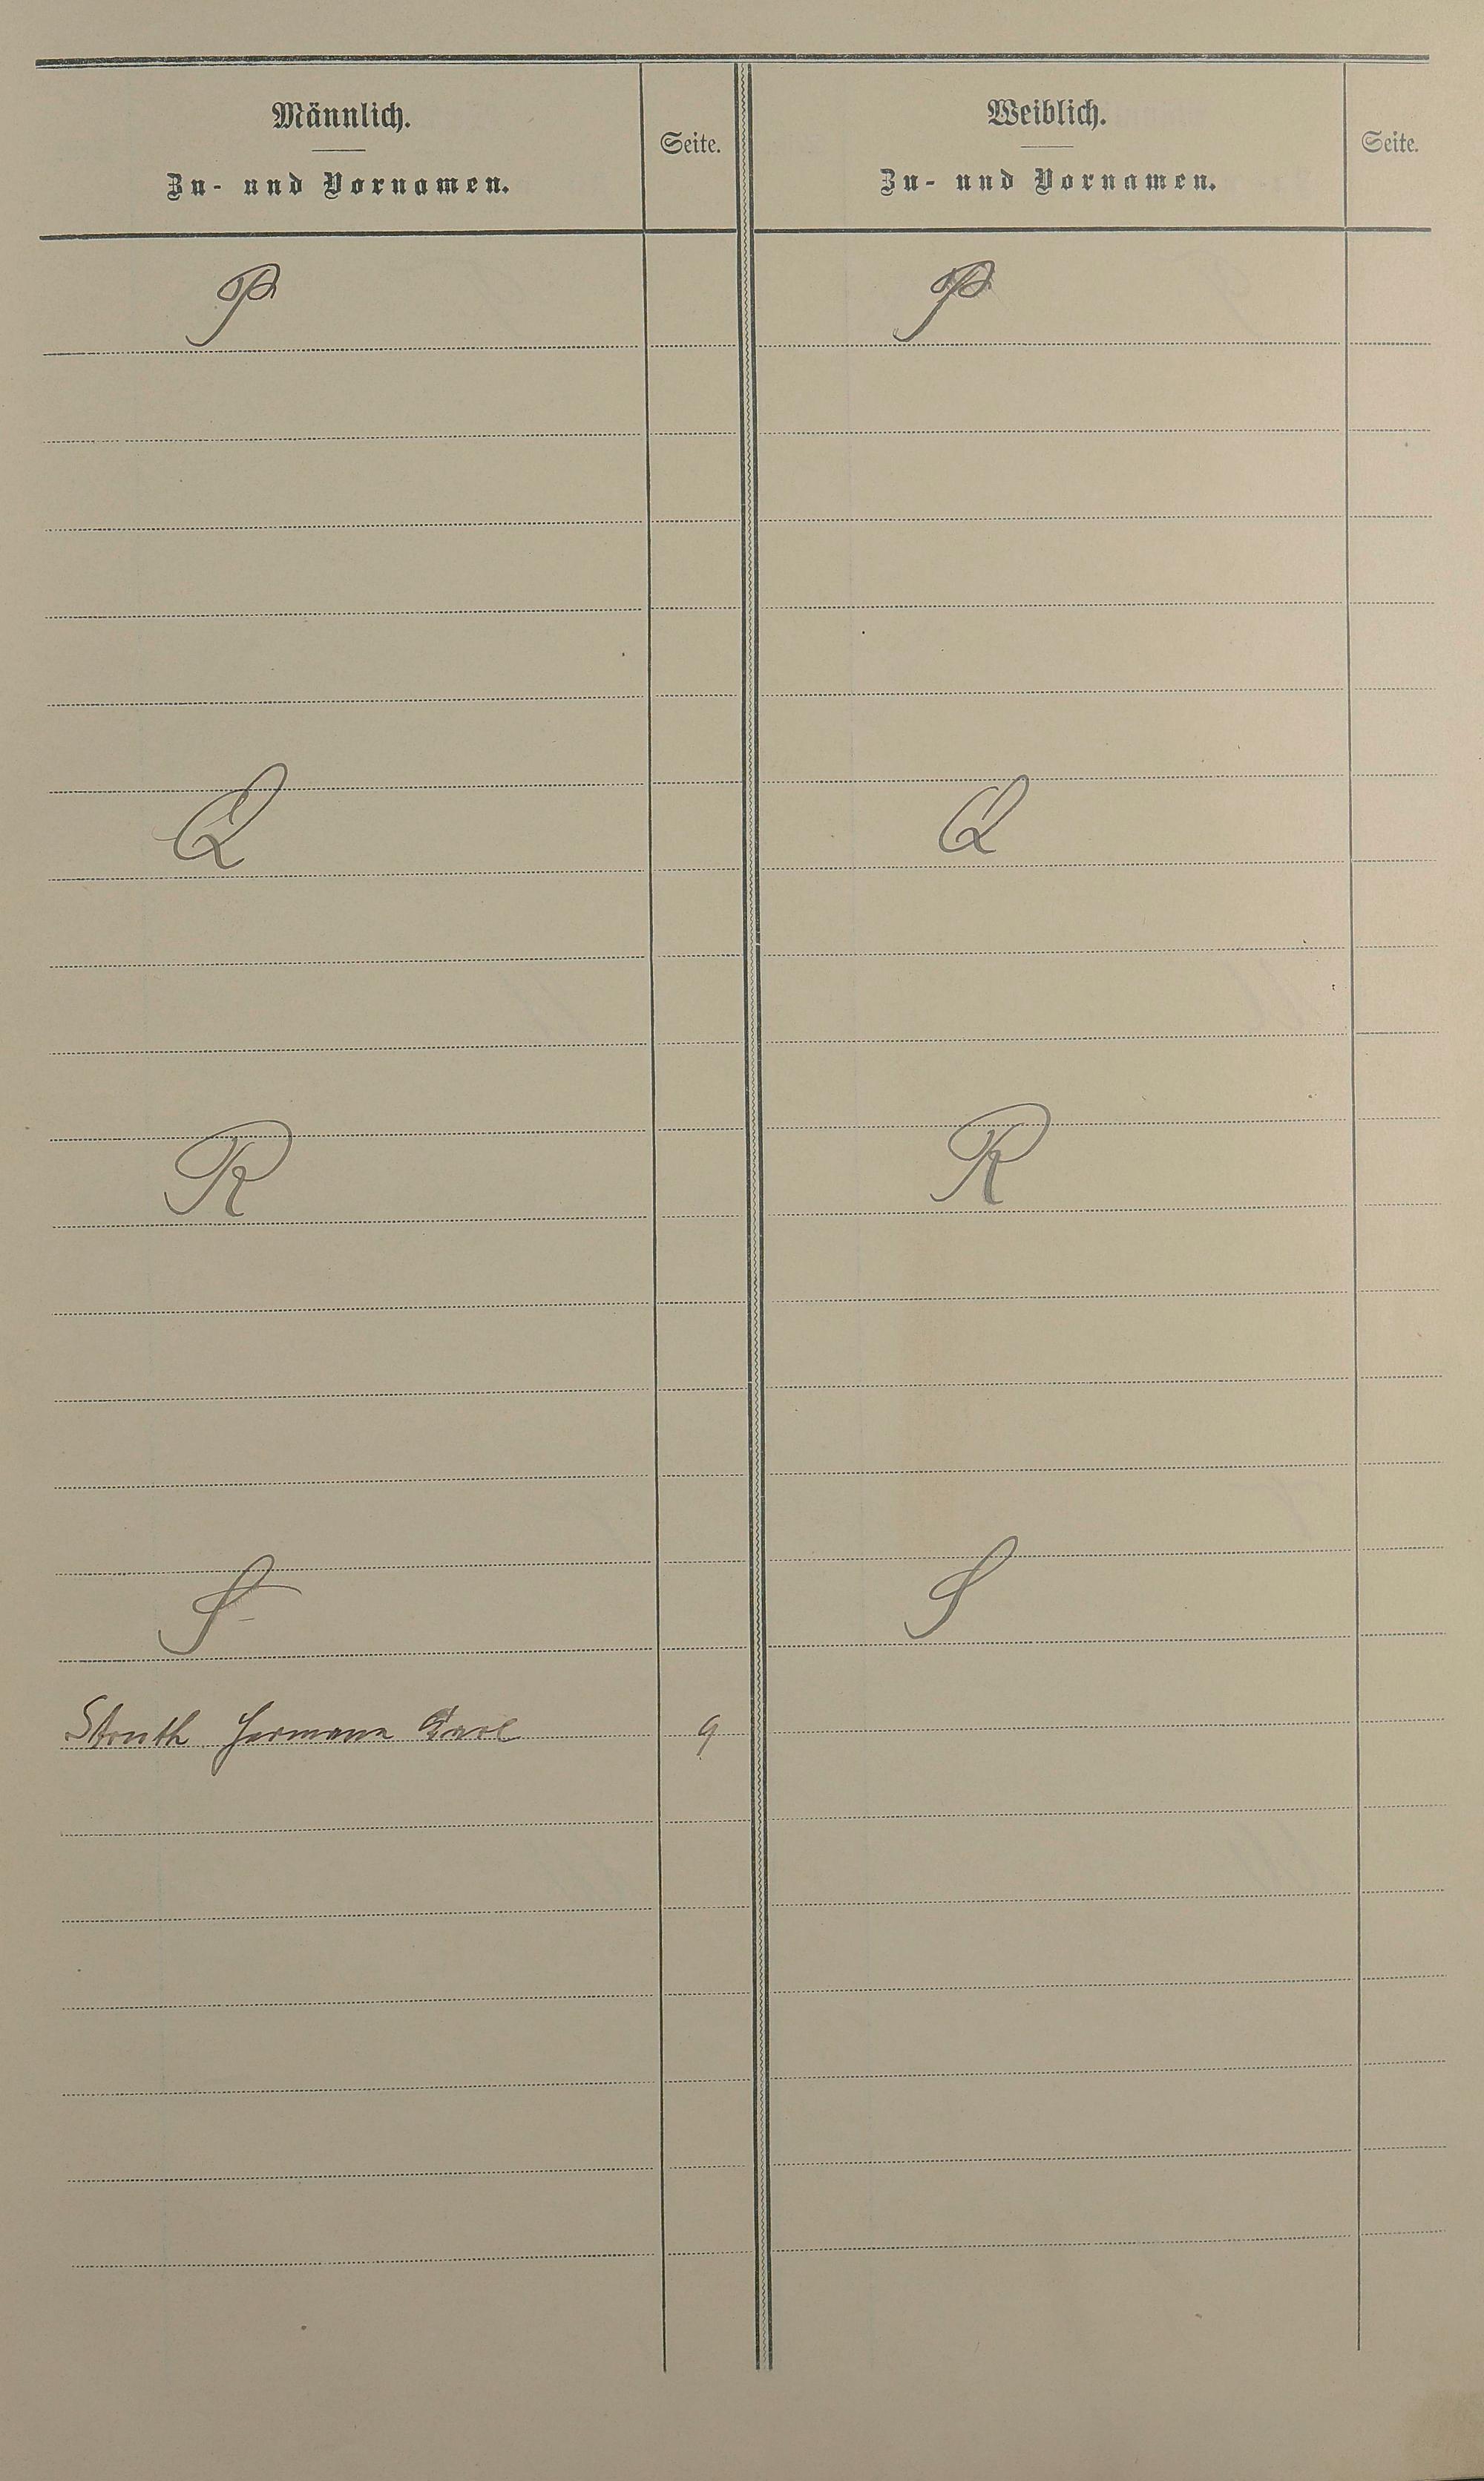 Männlich.
Zu- und Vornamen.
Seite.
Weiblich.
Zu- und Vornamen.
Seite.
P
P
Q
Q
R
R
S
S
Struth Hermann Carl
9